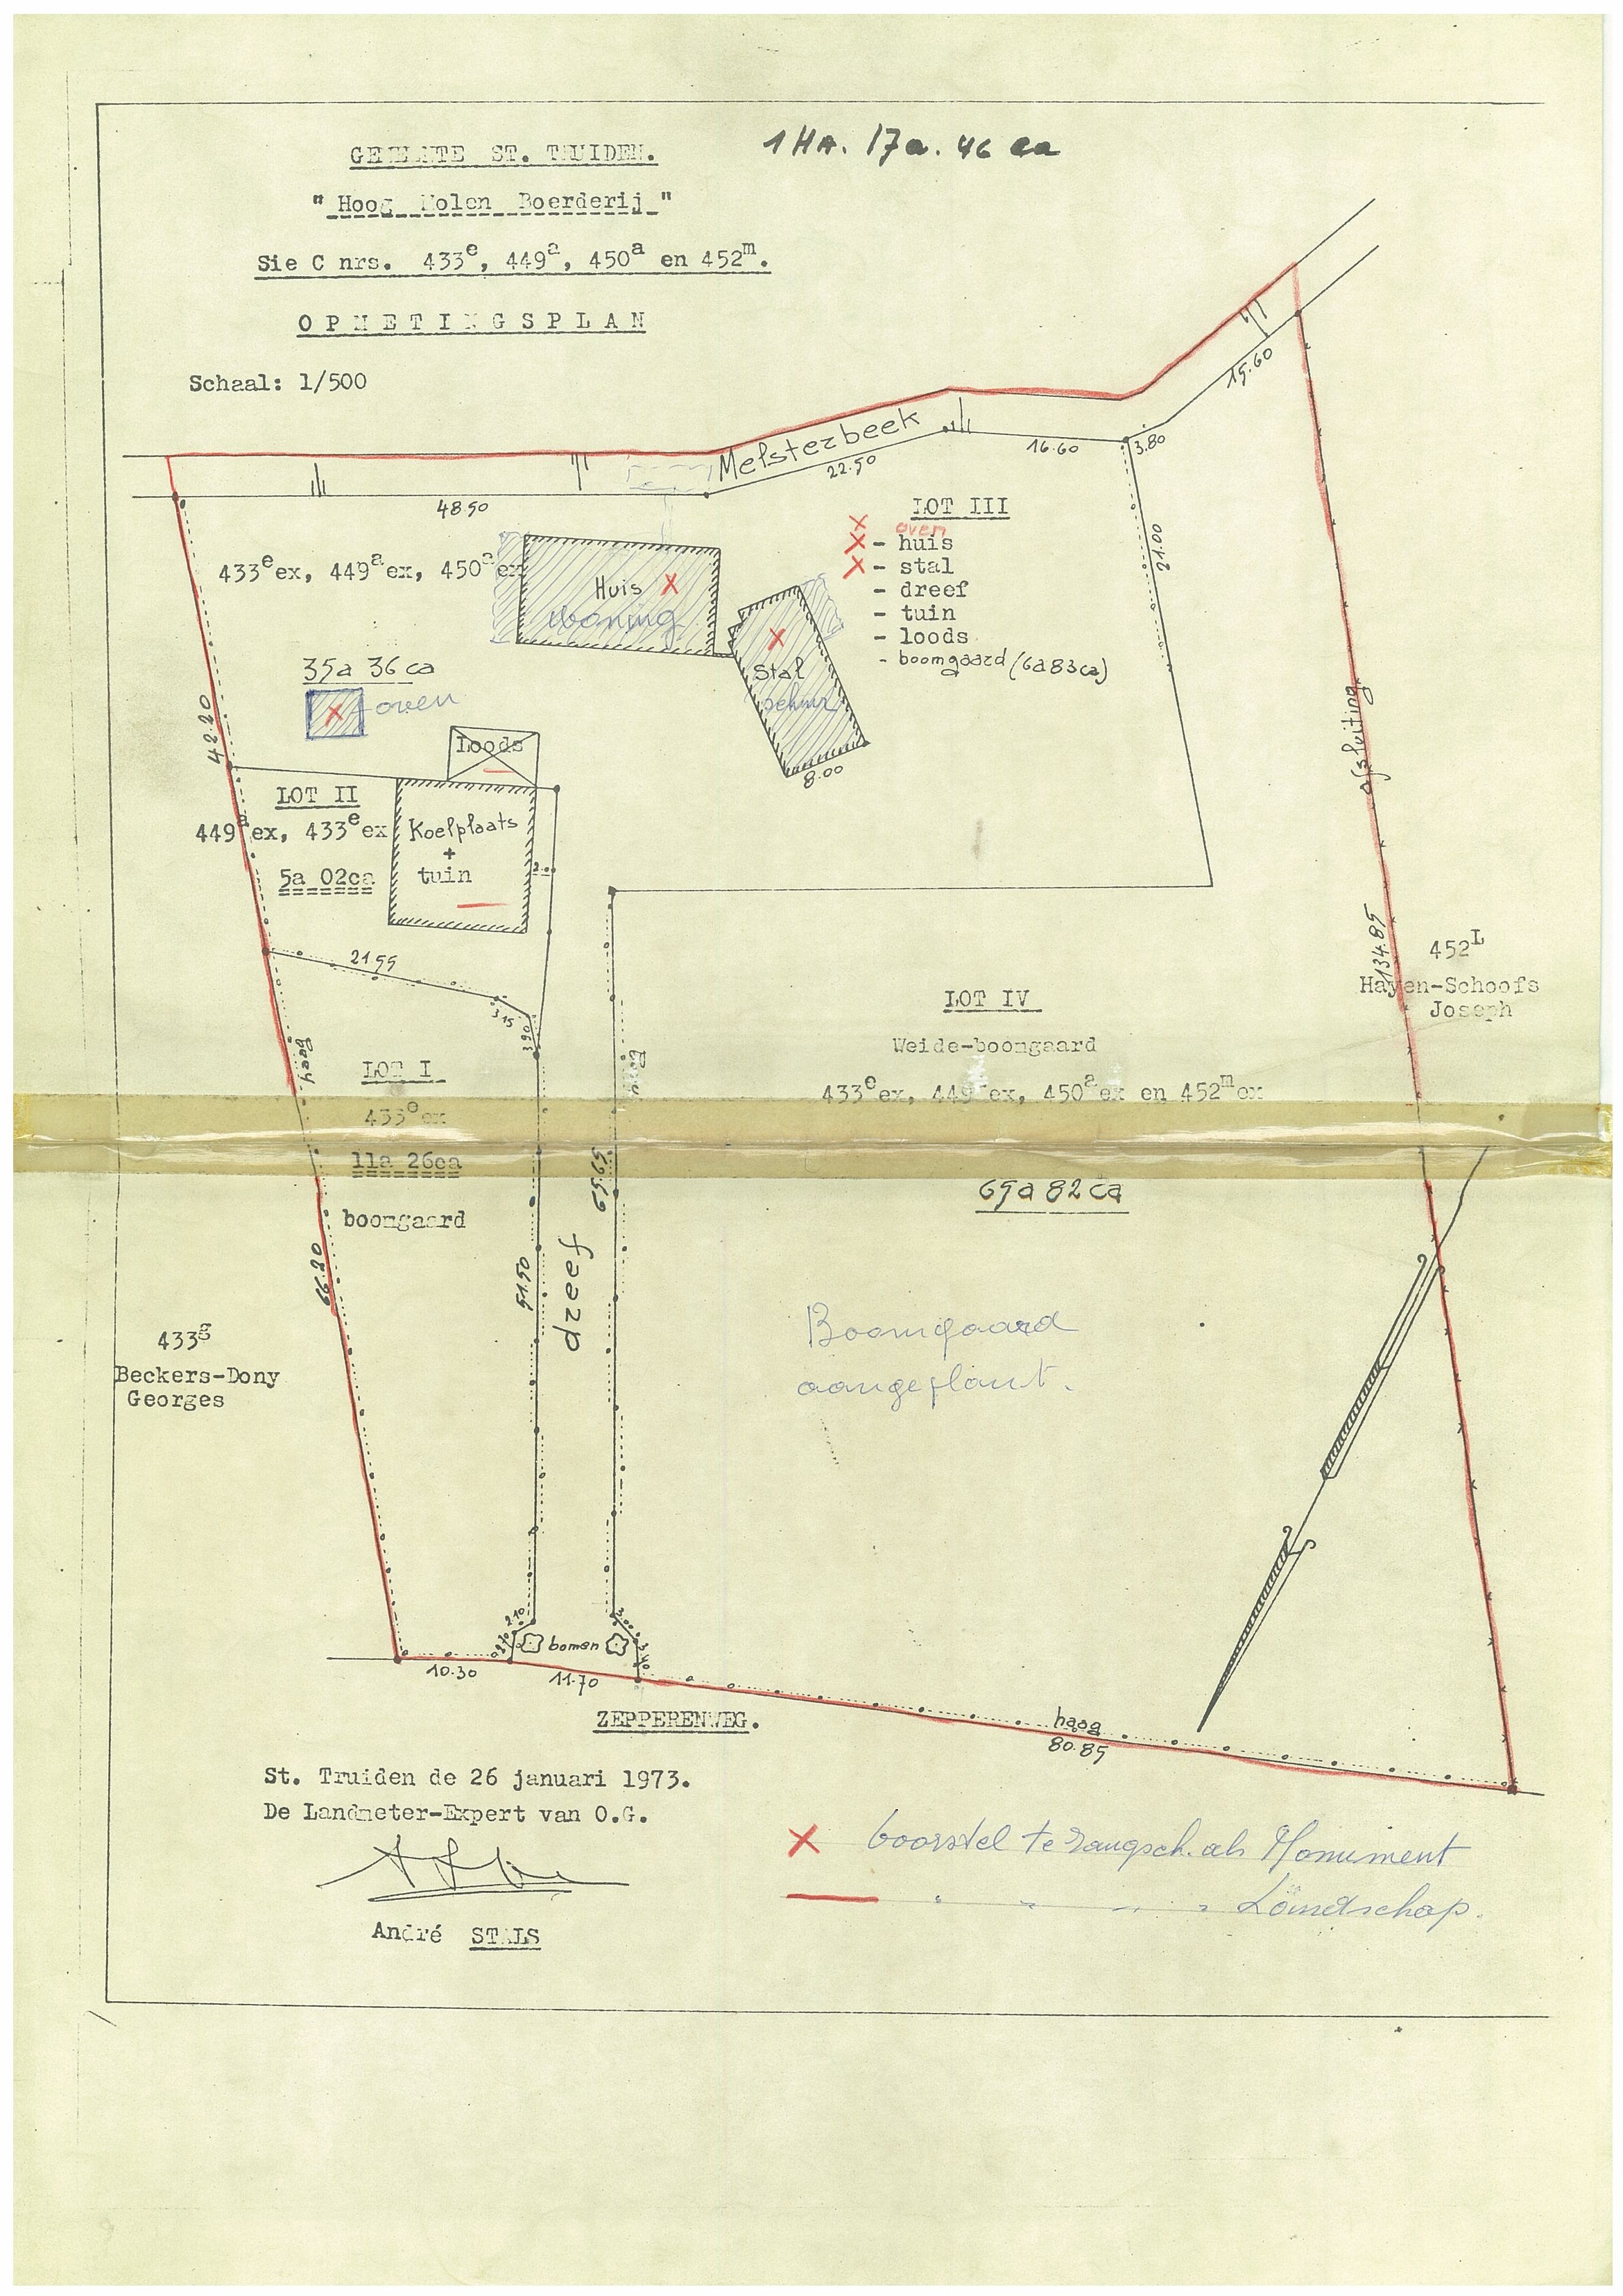 GEMEENTE ST. TRUIDEN.
1 HA. 17a. 46 ca
" Hoog Molen Boerderij "
Sie C nrs. 433e, 449a, 450a en 452m.
OPMETINGSPLAN
Schaal: 1/500
15.60
Melsterbeek
22.50
16.60
3.80
48.50
LOT III
oven
- huis
- stal
- dreef
- tuin
- loods
- boomgaard (6a83ca)
21.00
433e ex, 449a ex, 450a ex
Huis
woning
Stal
schuur
8.00
35a 36ca
oven
42.20
Loods
afsluiting
LOT II
449a ex, 433e ex
5a 02ca
Koelplaats
+
tuin
2.00
134.85
452L
Hayen-Schoofs
Joseph
21.55
3.15
3.90
LOT IV
Weide-boomgaard
433e ex, 449a ex, 450a ex en 452m ex
65a 82ca
haag
haag
LOT I
433e ex
11a 26ca
boomgaard
66.20
51.50
dreef
65.65
Boomgaard
aangeplant.
433g
Beckers-Dony
Georges
2.10
bomen
10.30
11.70
haag
80.85
ZEPPERENWEG.
St. Truiden de 26 januari 1973.
De Landmeter-Expert van O.G.
André STALS
voorstel te rangsch. als Monument
" " " " Landschap.